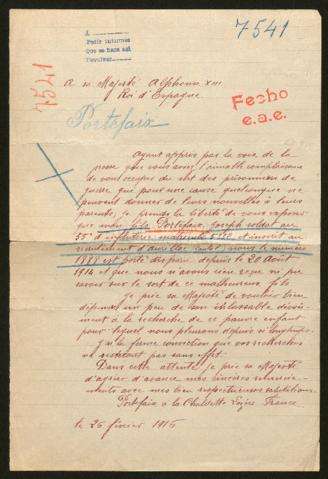 7541
A
Pedir informes
Que se haga así
Devolver
7541
A sa Majesté Alphonse XIII
Roi d'Espagne
Fecho
e.a.e.
Portefaix
Ayant appris par la voie de la
presse que vous avez l'aimable complaisance
de vous occuper du sort des prisonniers de
guerre qui pour une cause quelconque ne
peuvent donner de leurs nouvelles à leurs
parents, je prends la liberté de vous exposer
que mon fils Portefaix Joseph soldat au
55e d'infanterie matricule et inscrit au
recrutement d' sous le numéro
1878 est porté disparu depuis le 20 Août
1914 et que nous n'avons rien reçu ni pu
savoir sur le sort de ce malheureux fils
Je prie sa Majesté de vouloir bien
dépenser un peu de son inlassable dévoue
ment à la recherche de ce pauvre enfant
pour lequel nous pleurons depuis si longtemps.
J'ai la ferme conviction que vos recherches
ne resteront pas sans effet.
Dans cette attente je prie sa Majesté
d'agréer d'avance mes sincères remercie
ments avec mes bien respectueuses salutations.
Portefaix à la Chaldette Lozère France
le 26 février 1916